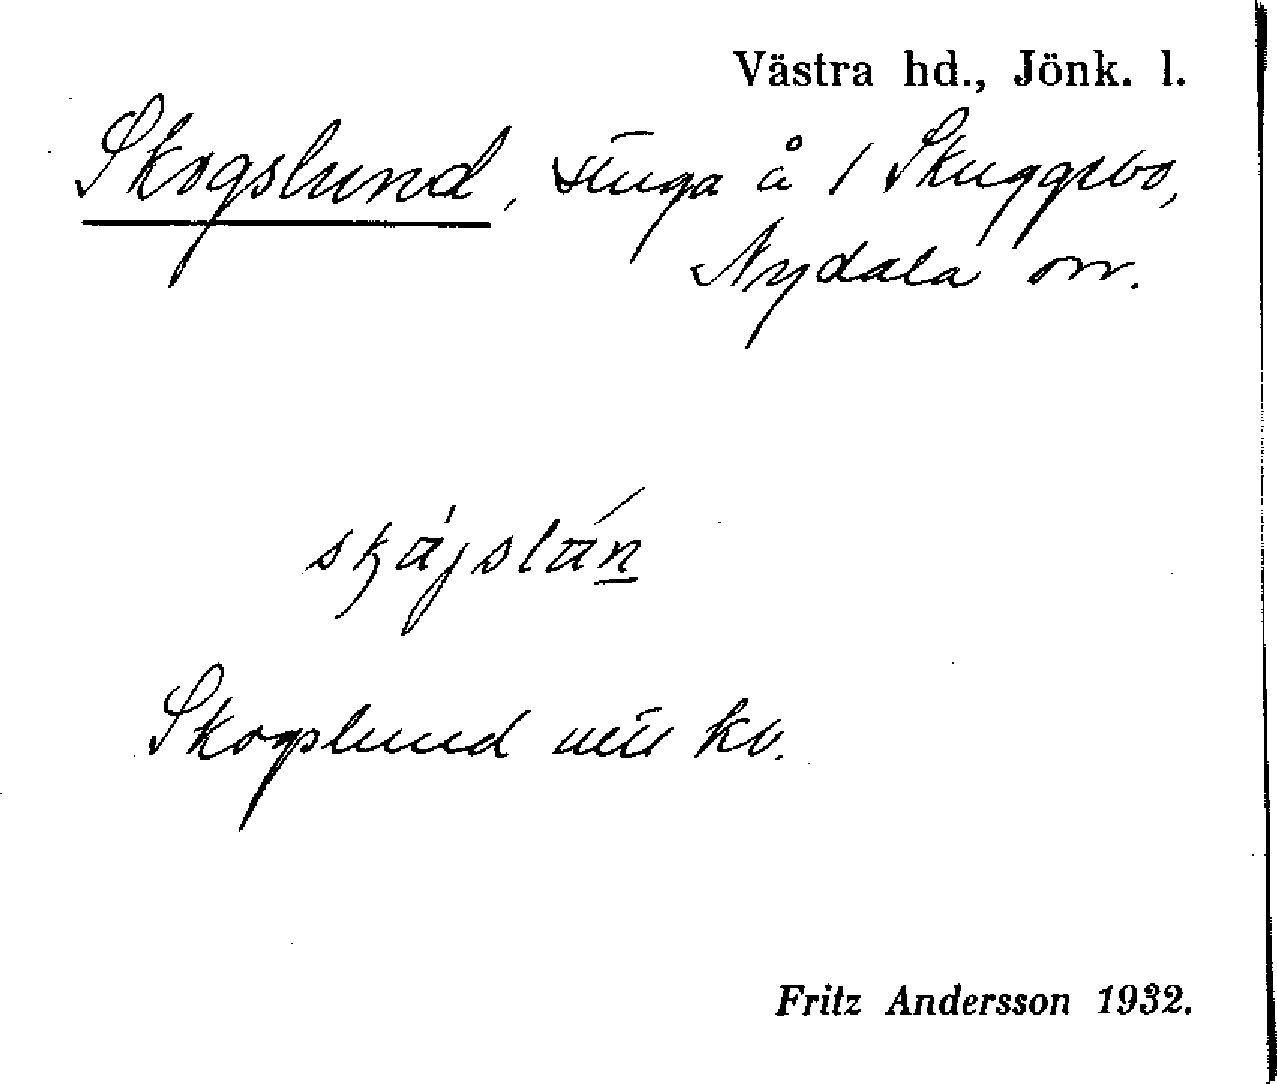 Västra hd., Jönk. l.
Skogslund, stuga å 1 Skuggebo,
Nydala sn.
Skogslund utt. kv.
Fritz Andersson 1932.